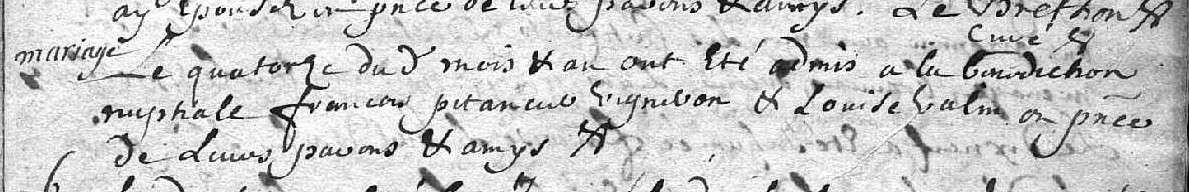 ay Epouser en pnce de leur parens & amys. Le Brethon
Curé
mariage
Le quatorze dud mois & an ont Eté admis a la benediction
nuptale francois vigneron & Louise en pnce
de Leurs parens & amys